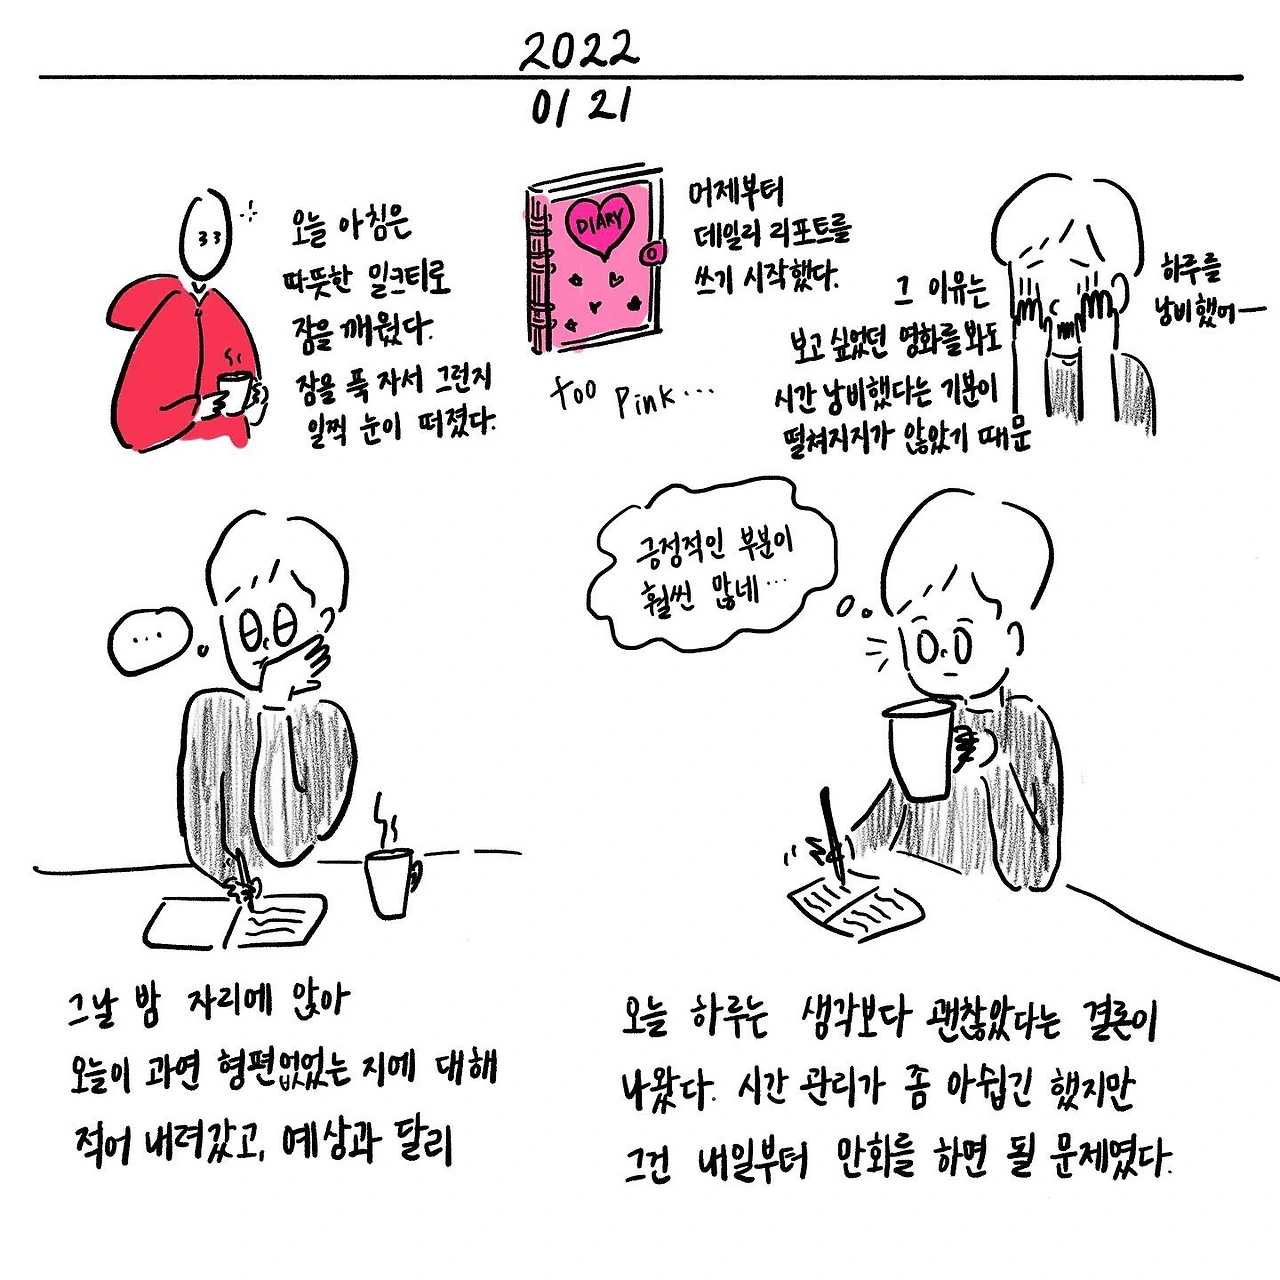 2022
01 21
오늘 아침은
따뜻한 밀크티로
잠을 깨웠다.
잠을 푹 자서 그런지
일찍 눈이 떠졌다.
DIARY
too pink...
어제부터
데일리 리포트를
쓰기 시작했다.
그 이유는
보고 싶었던 영화를 봐도
시간 낭비했다는 기분이
떨쳐지지가 않았기 때문
하루를
낭비했어—
...
그날 밤 자리에 앉아
오늘이 과연 형편없었는 지에 대해
적어 내려갔고, 예상과 달리
긍정적인 부분이
훨씬 많네...
오늘 하루는 생각보다 괜찮았다는 결론이
나왔다. 시간 관리가 좀 아쉽긴 했지만
그건 내일부터 안화를 하면 될 문제였다.